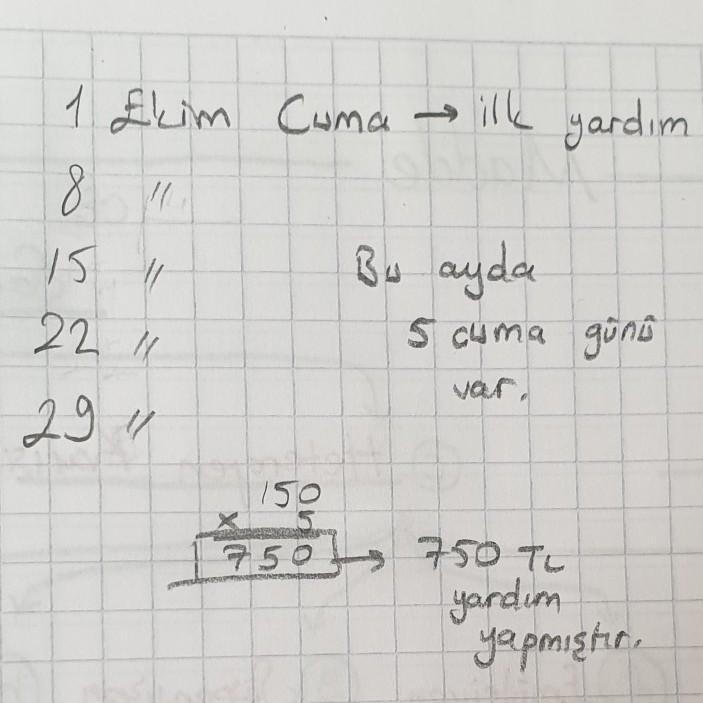 1 Ekim Cuma → ilk yardım
8 "
15 "
22 "
29 "
Bu ayda
5 cuma günü
var.
150
x 5
750 → 750 TL
yardım
yapmıştır.